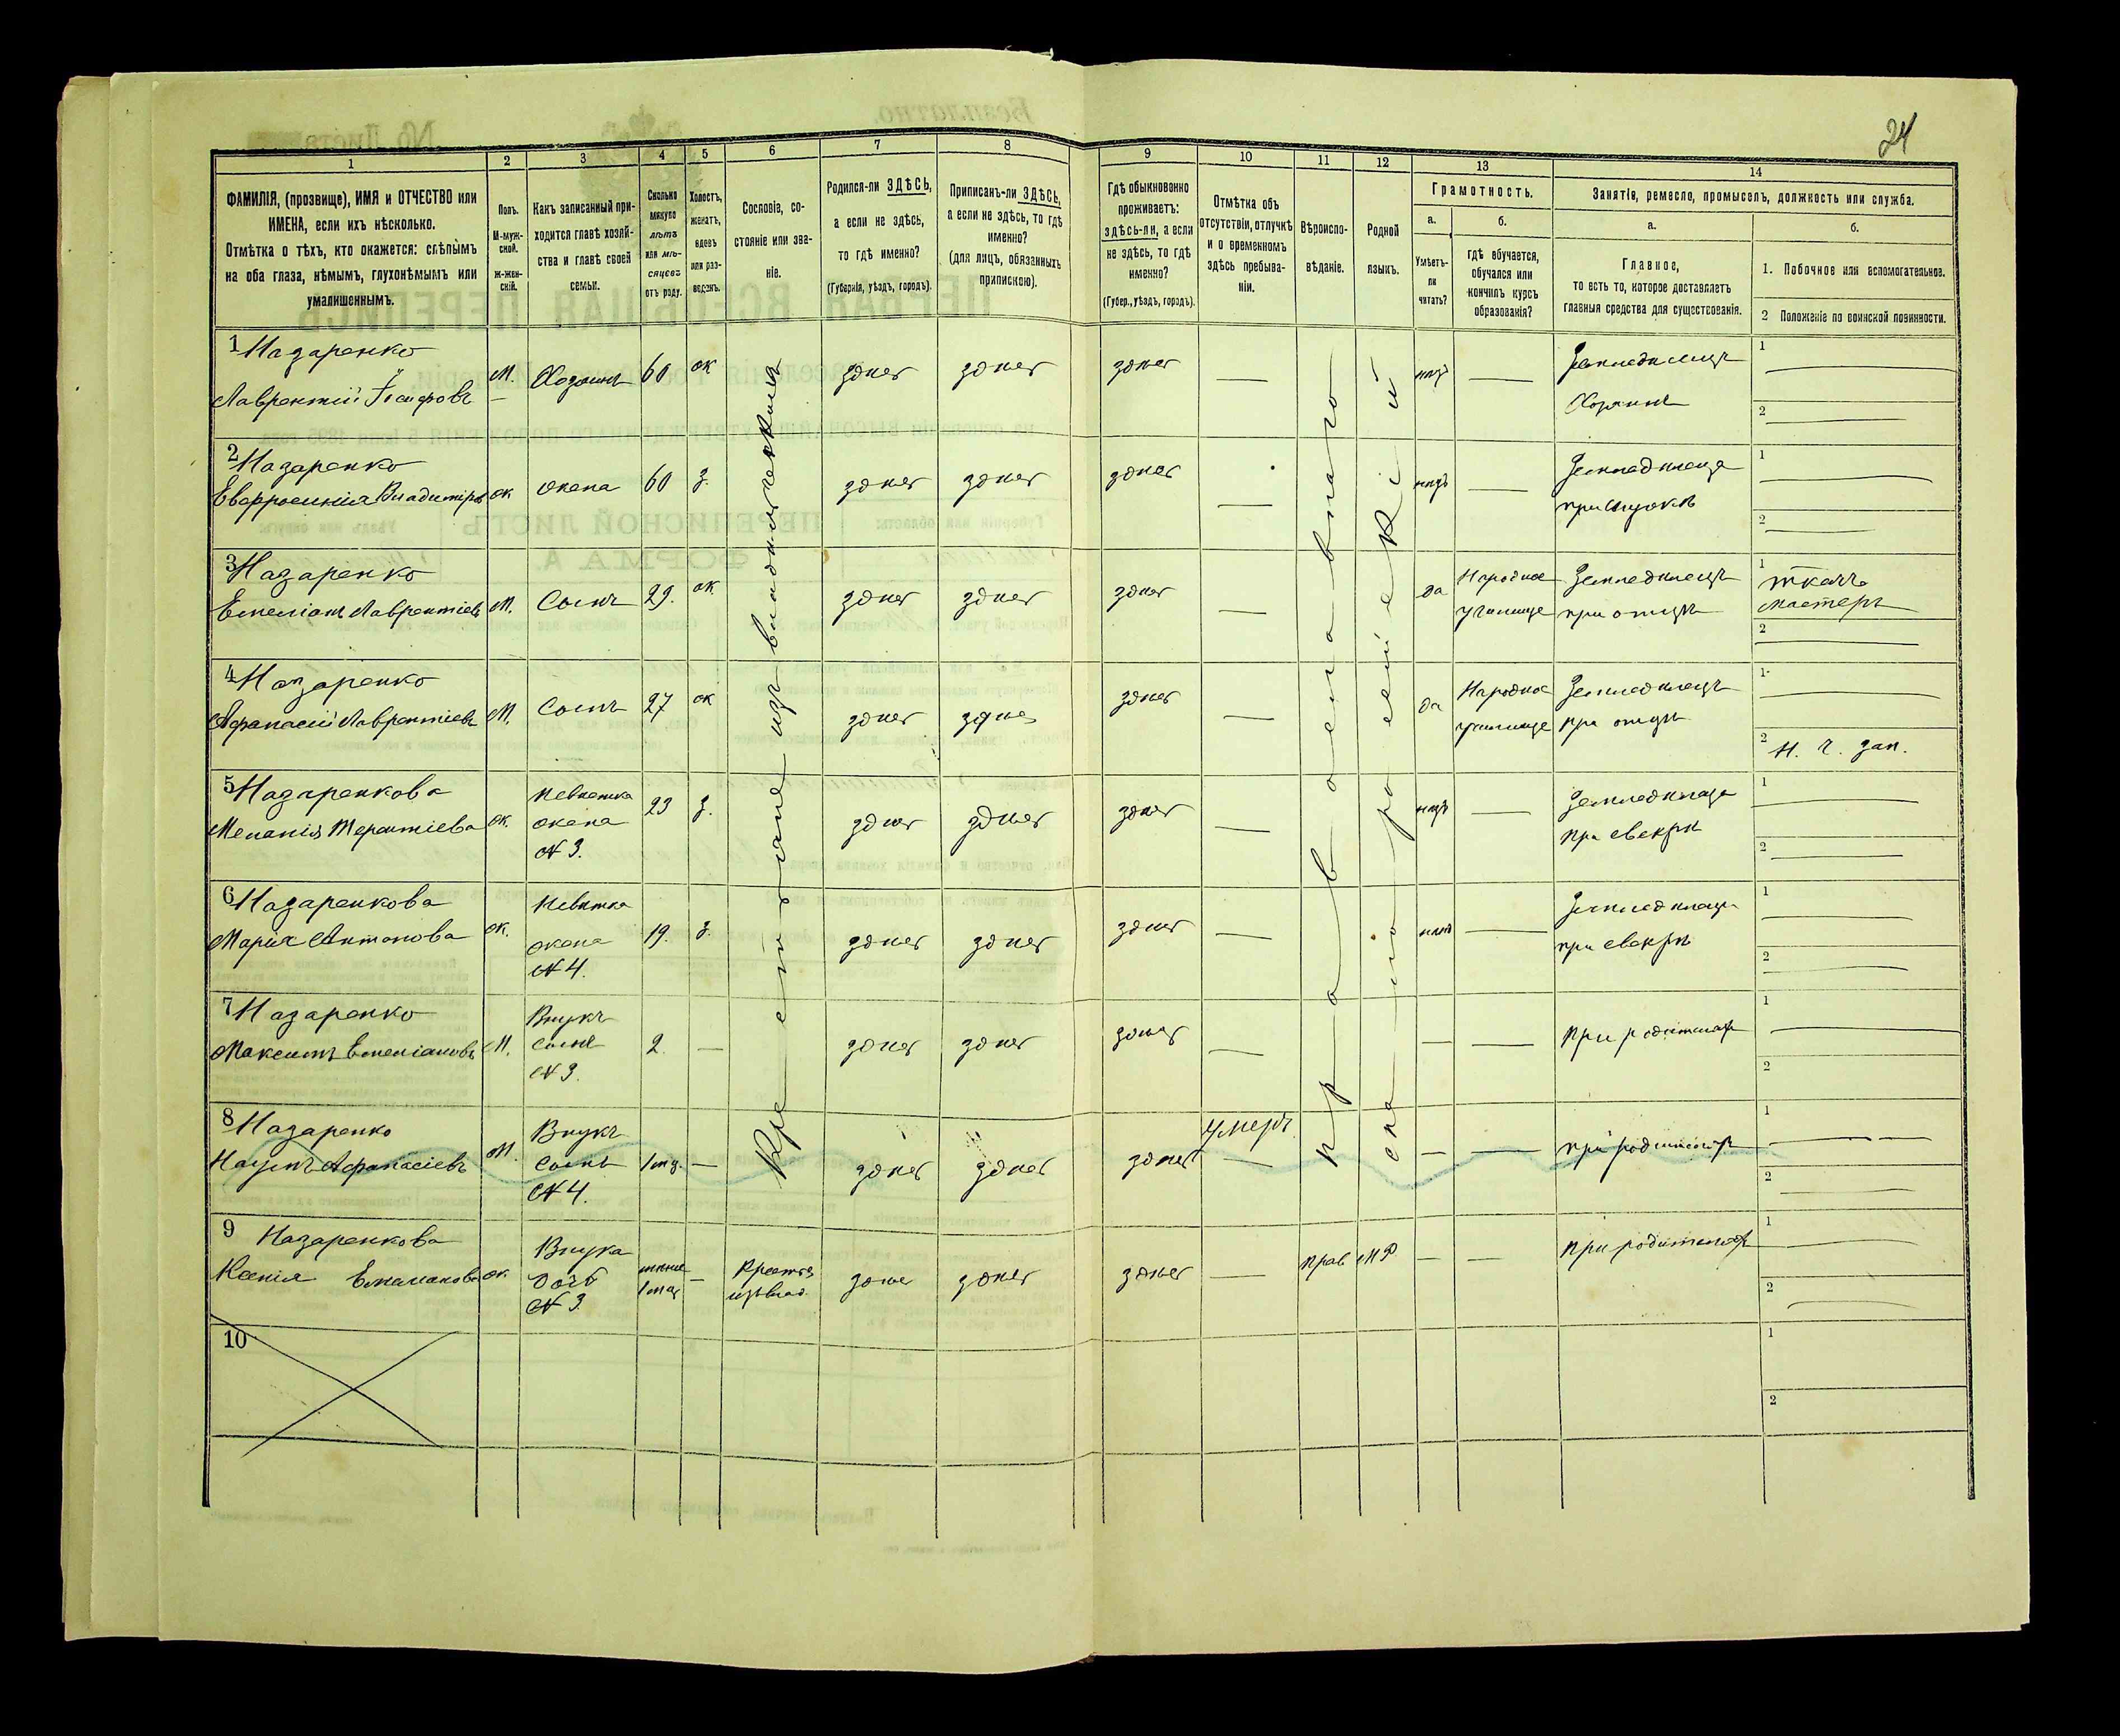 24
1 2 3 4 5 6 7 8 9 10 11 12 13 14
ФАМИЛІЯ, (прозвище), ИМЯ и ОТЧЕСТВО или
ИМЕНА, если ихъ нѣсколько.
Отмѣтка о тѣхъ, кто окажется: слѣпымъ
на оба глаза, нѣмымъ, глухонѣмымъ или
умалишеннымъ.
Полъ.
М-муж-
ской.
Ж-жен-
скій.
Какъ записанный при-
ходится главѣ хозяй-
ства и главѣ своей
семьи.
Сколько
минуло
лѣтъ
или мѣ-
сяцевъ
отъ роду.
Холостъ,
женатъ,
вдовъ
или раз-
веденъ.
Сословіе, со-
стояніе или зва-
ніе.
Родился-ли ЗДѢСЬ,
а если не здѣсь,
то гдѣ именно?
(Губернія, уѣздъ, городъ).
Приписанъ-ли ЗДѢСЬ,
а если не здѣсь, то гдѣ
именно?
(для лицъ, обязанныхъ
припискою).
Гдѣ обыкновенно
проживаетъ:
здѣсь-ли, а если
не здѣсь, то гдѣ
именно?
(Губер., уѣздъ, городъ).
Отмѣтка объ
отсутствіи, отлучкѣ
и о временномъ
здѣсь пребыва-
ніи.
Вѣроиспо-
вѣданіе.
Родной
языкъ.
Грамотность.
а.
Умѣетъ-
ли
читать?
б.
гдѣ обучается,
обучался или
кончилъ курсъ
образованія?
Занятія, ремесло, промыселъ, должность или служба.
а.
Главное,
то есть то, которое доставляетъ
главныя средства для существованія.
б.
1. Побочное или вспомогательное.
2 Положеніе по воинской повинности.
Крестьяне изъ владѣльческихъ
православнаго
малороссійскій
1 Назаренко
Лаврентій
М. Хозяинъ 60 ж здѣсь здѣсь здѣсь — нѣтъ — Земледѣлецъ
Хозяинъ
1
2
2 Назаренко
Евфросинія Владимірова
ж жена 60 з. здѣсь здѣсь здѣсь — нѣтъ — Земледѣлица
при мужѣ
1
2
3 Назаренко
Емеліанъ Лаврентіевъ
М. Сынъ 29. ж здѣсь здѣсь здѣсь — да Народное
училище
Земледѣлецъ
при отцѣ
1 ткачъ
мастеръ
2
4 Назаренко
Афанасій Лаврентіевъ
М. Сынъ 27 ж здѣсь здѣсь здѣсь — да Народное
училище
Земледѣлецъ
при отцѣ
1
2 Н. ч. зап.
5 Назаренкова
Меланія Терентіева
ж. невѣстка
жена
№ 3.
23 з. здѣсь здѣсь здѣсь — нѣтъ — Земледѣлица
при свекрѣ
1
2
6 Назаренкова
Марія Антонова
ж. Невѣстка
жена
№ 4.
19. з. здѣсь здѣсь здѣсь — нѣтъ — Земледѣлица
при свекрѣ
1
2
7 Назаренко
Максимъ Емеліановъ
М. Внукъ
сынъ
№ 3.
2 — здѣсь здѣсь здѣсь — — — При родителяхъ
1
2
8 Назаренко
Наумъ Афанасіевъ
М. Внукъ
Сынъ
№ 4.
— здѣсь здѣсь здѣсь Умеръ
— — — при родителяхъ
1
2
9 Назаренкова
Ксенія
ж. Внука
дочь
№ 3.
менѣе
— здѣсь здѣсь здѣсь — прав МР — — при родителяхъ
1
2
10
1
2